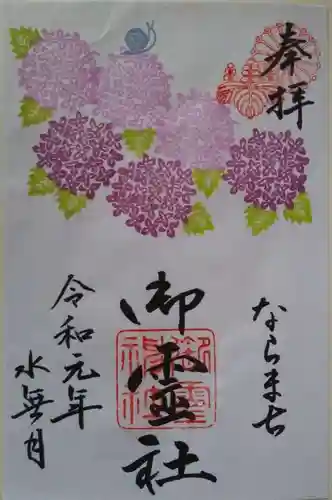 奉拝
ならまち
御霊社
令和元年
水無月